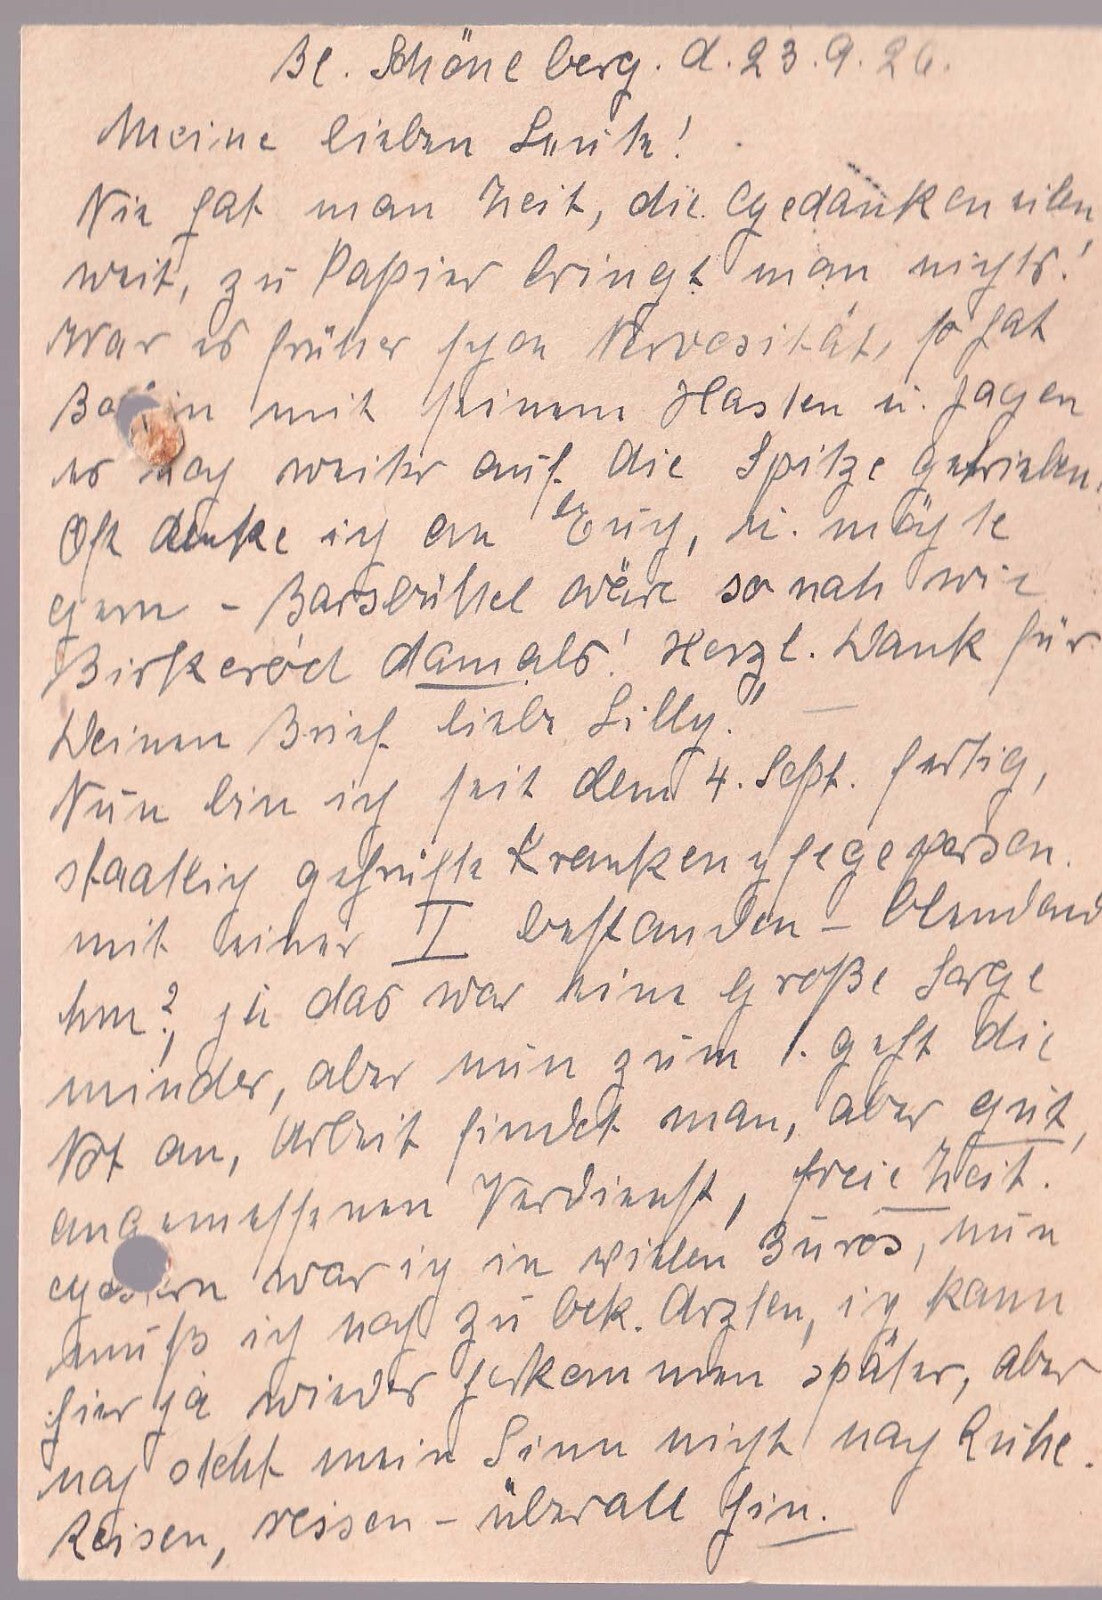 Bl. Schöneberg. d. 23.9.26.
Meine lieben Leute!
Nie hat man Zeit, die Gedanken eilen
weit, zu Papier bringt man nichts!
War es früher schon Nervosität, so hat
Berlin mit seinem Hasten u. Jagen
es noch weiter auf die Spitze getrieben.
Oft denke ich an Euch, u. möchte
gern – Barsbüttel wäre so nah wie
Birkeröd damals! Herzl. Dank für
Deinen Brief liebe Lilly! –
Nun bin ich seit dem 4. Sept. fertig,
staatlich geprüfte Krankenpflegeperson.
mit einer I bestanden –
hm?, ja das war eine große Sorge
minder, aber nun zum 1. geht die
Not an, Arbeit findet man, aber gut,
angemessenen Verdienst, freie Zeit.
gestern war ich in vielen Büros, nun
muß ich noch zu bek. Ärzten, ich kann
hier ja wieder herkommen später, aber
noch steht mein Sinn nicht nach Ruhe.
Reisen, reisen – überall hin.